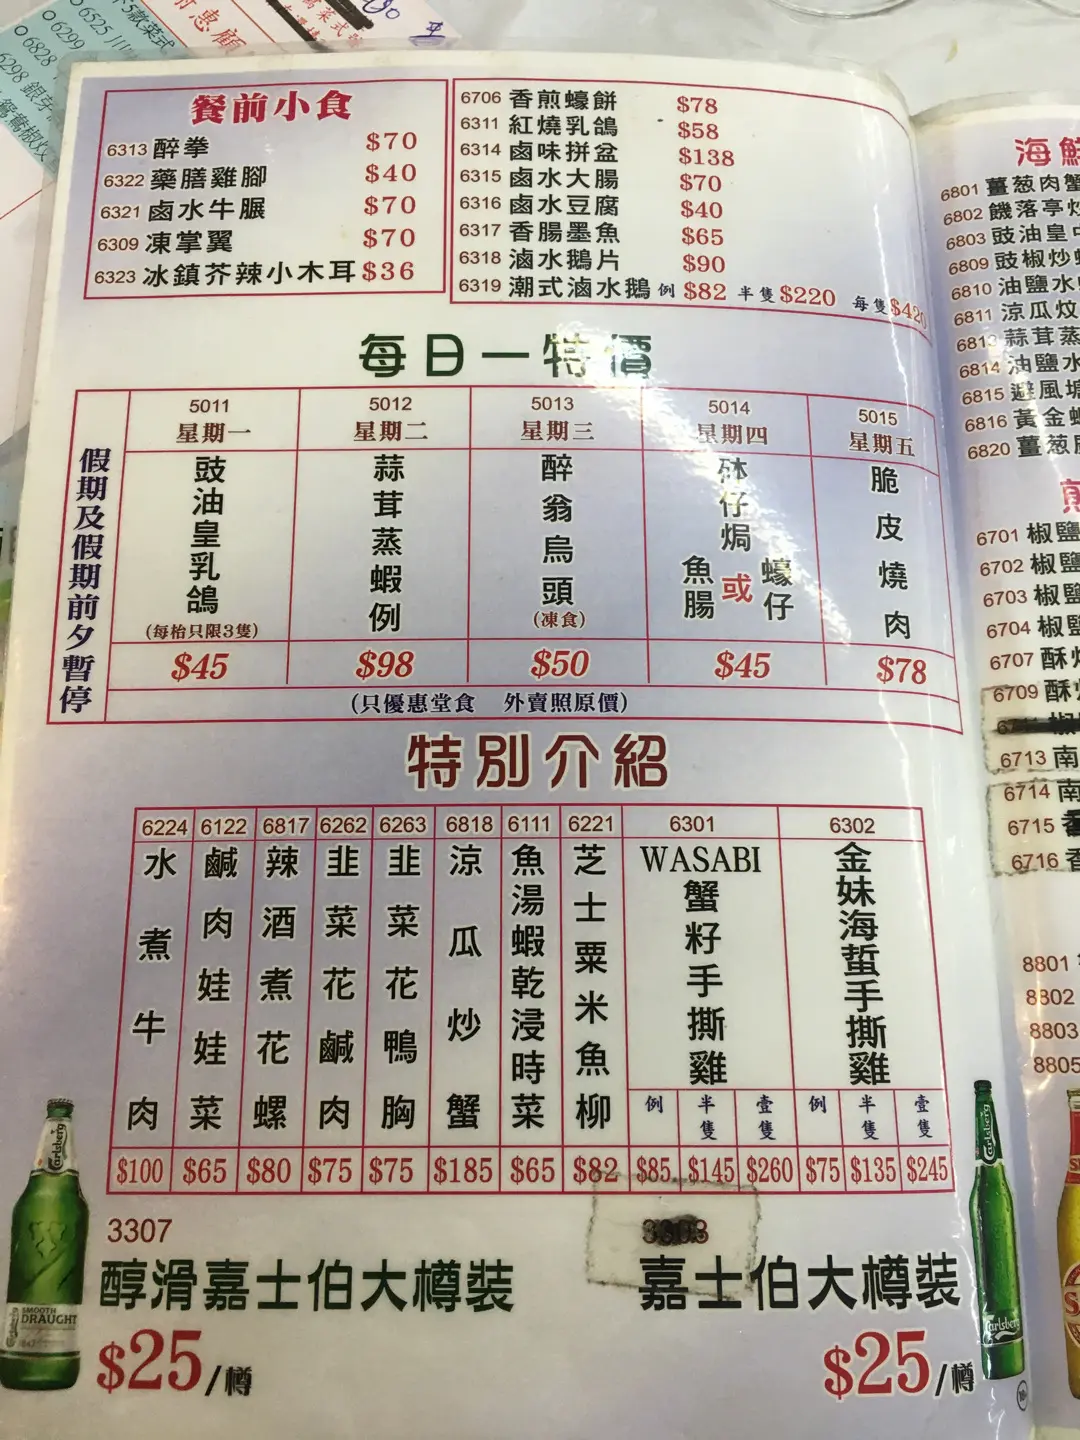 餐前小食
6313 醉拳 $70
6322 藥膳雞腳 $40
6321 鹵水牛𦟌 $70
6309 凍掌翼 $70
6323 冰鎮芥辣小木耳 $36
6706 香煎蠔餅 $78
6311 紅燒乳鴿 $58
6314 鹵味拼盆 $138
6315 鹵水大腸 $70
6316 鹵水豆腐 $40
6317 香腸墨魚 $65
6318 滷水鵝片 $90
6319 潮式滷水鵝 例 $82 半隻 $220 每隻 $420
每日一特價
假期及假期前夕暫停
5011 星期一 豉油皇乳鴿 (每枱只限3隻) $45
5012 星期二 蒜茸蒸蝦例 $98
5013 星期三 醉翁烏頭 (凍食) $50
5014 星期四 砵仔焗魚腸或蠔仔 $45
5015 星期五 脆皮燒肉 $78
(只優惠堂食 外賣照原價)
特別介紹
6224 水煮牛肉 $100
6122 鹹肉娃娃菜 $65
6817 辣酒煮花螺 $80
6262 韭菜花鹹肉 $75
6263 韭菜花鴨胸 $75
6818 涼瓜炒蟹 $185
6111 魚湯蝦乾浸時菜 $65
6221 芝士粟米魚柳 $82
6301 WASABI蟹籽手撕雞 例 $85 半隻 $145 壹隻 $260
6302 金妹海蜇手撕雞 例 $75 半隻 $135 壹隻 $245
3307
醇滑嘉士伯大樽裝
$25/樽
嘉士伯大樽裝
$25/樽
Carlsberg
SMOOTH
DRAUGHT
Carlsberg
海鮮
6801 薑葱肉蟹
6802
6803 豉油皇
6809 豉椒炒
6810 油鹽水
6811 涼瓜炆
6813 蒜茸蒸
6814 油鹽水
6815 避風塘
6816 黃金
6820 薑葱
6701 椒鹽
6702 椒鹽
6703 椒鹽
6704 椒鹽
6707 酥炸
6709 酥炸
6713 南
6714 南
6715
6716 香
8801
8802
8803
8805